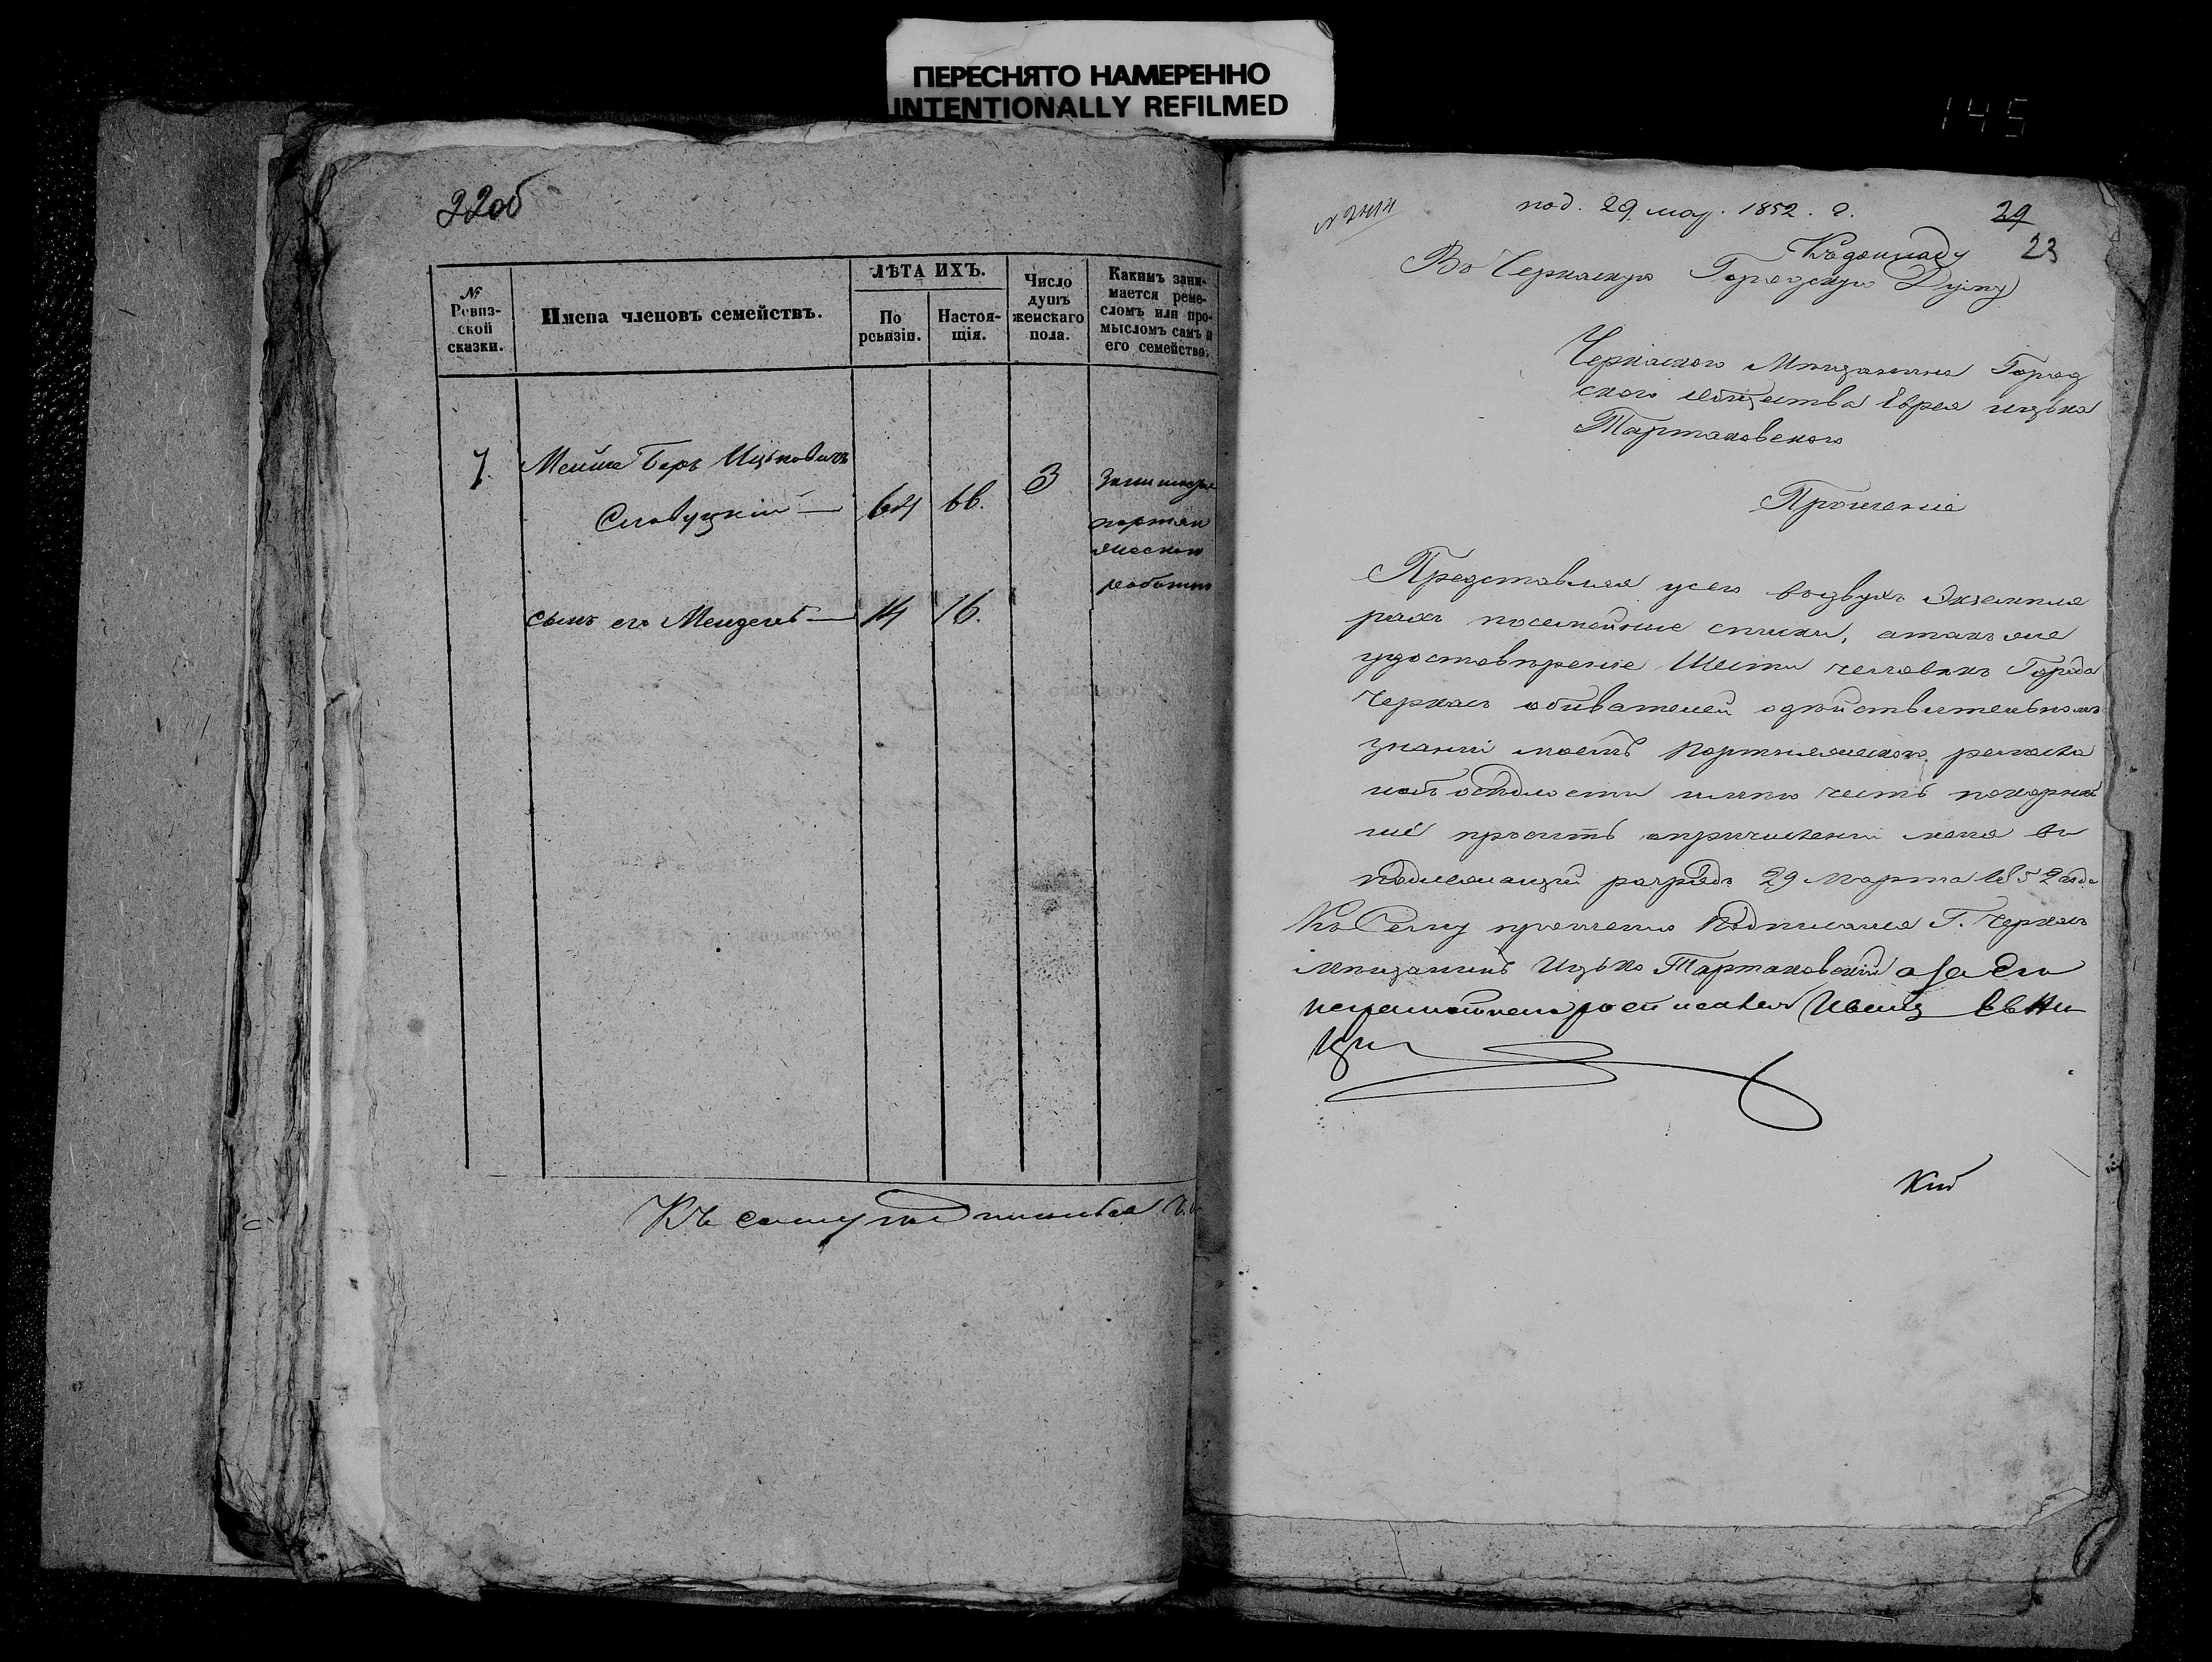 ПЕРЕСНЯТО НАМЕРЕННО
INTENTIONALLY REFILMED
145
22об
№ Ревиз-ской сказки.
Имена членовъ семействъ.
ЛѢТА ИХЪ.
По ревизіи.
Настоя-щія.
Число душъ женскаго пола.
Какимъ зани-мается реме-сломъ или про-мысломъ самъ и его семейство.
7. Мейше Беръ Ицьковичъ
Славуцкій — 64 66. 3
портня
жескою
работою
сынъ его Мендель — 14 16.
Къ сему
№ 2414
под. 29 мар. 1852. г.
29
23
Къ докладу
Въ Черкаскую Городскую Думу
Черкаского Мѣщанина Город
ского общества Еврея Ицька
Тартаковского
Прошение
Представляя усего въ двухъ Экземпля
рахъ посемейные списки, атакъ же
удостовѣрение Шести человѣкъ Города
Черкасъ обивателей одѣйствительномъ
знаніи моемъ Портняжеского ремесла
осѣдлости имѣю честь покорнѣй
ше просить опричисленіи меня въ
надлежащій разрядъ 29 Марта 1852 года
Къ Сему прошению Подписался Г. Черкасъ
мѣщанинъ Ицько Тартаковскій а за Его
неграмотного росписался